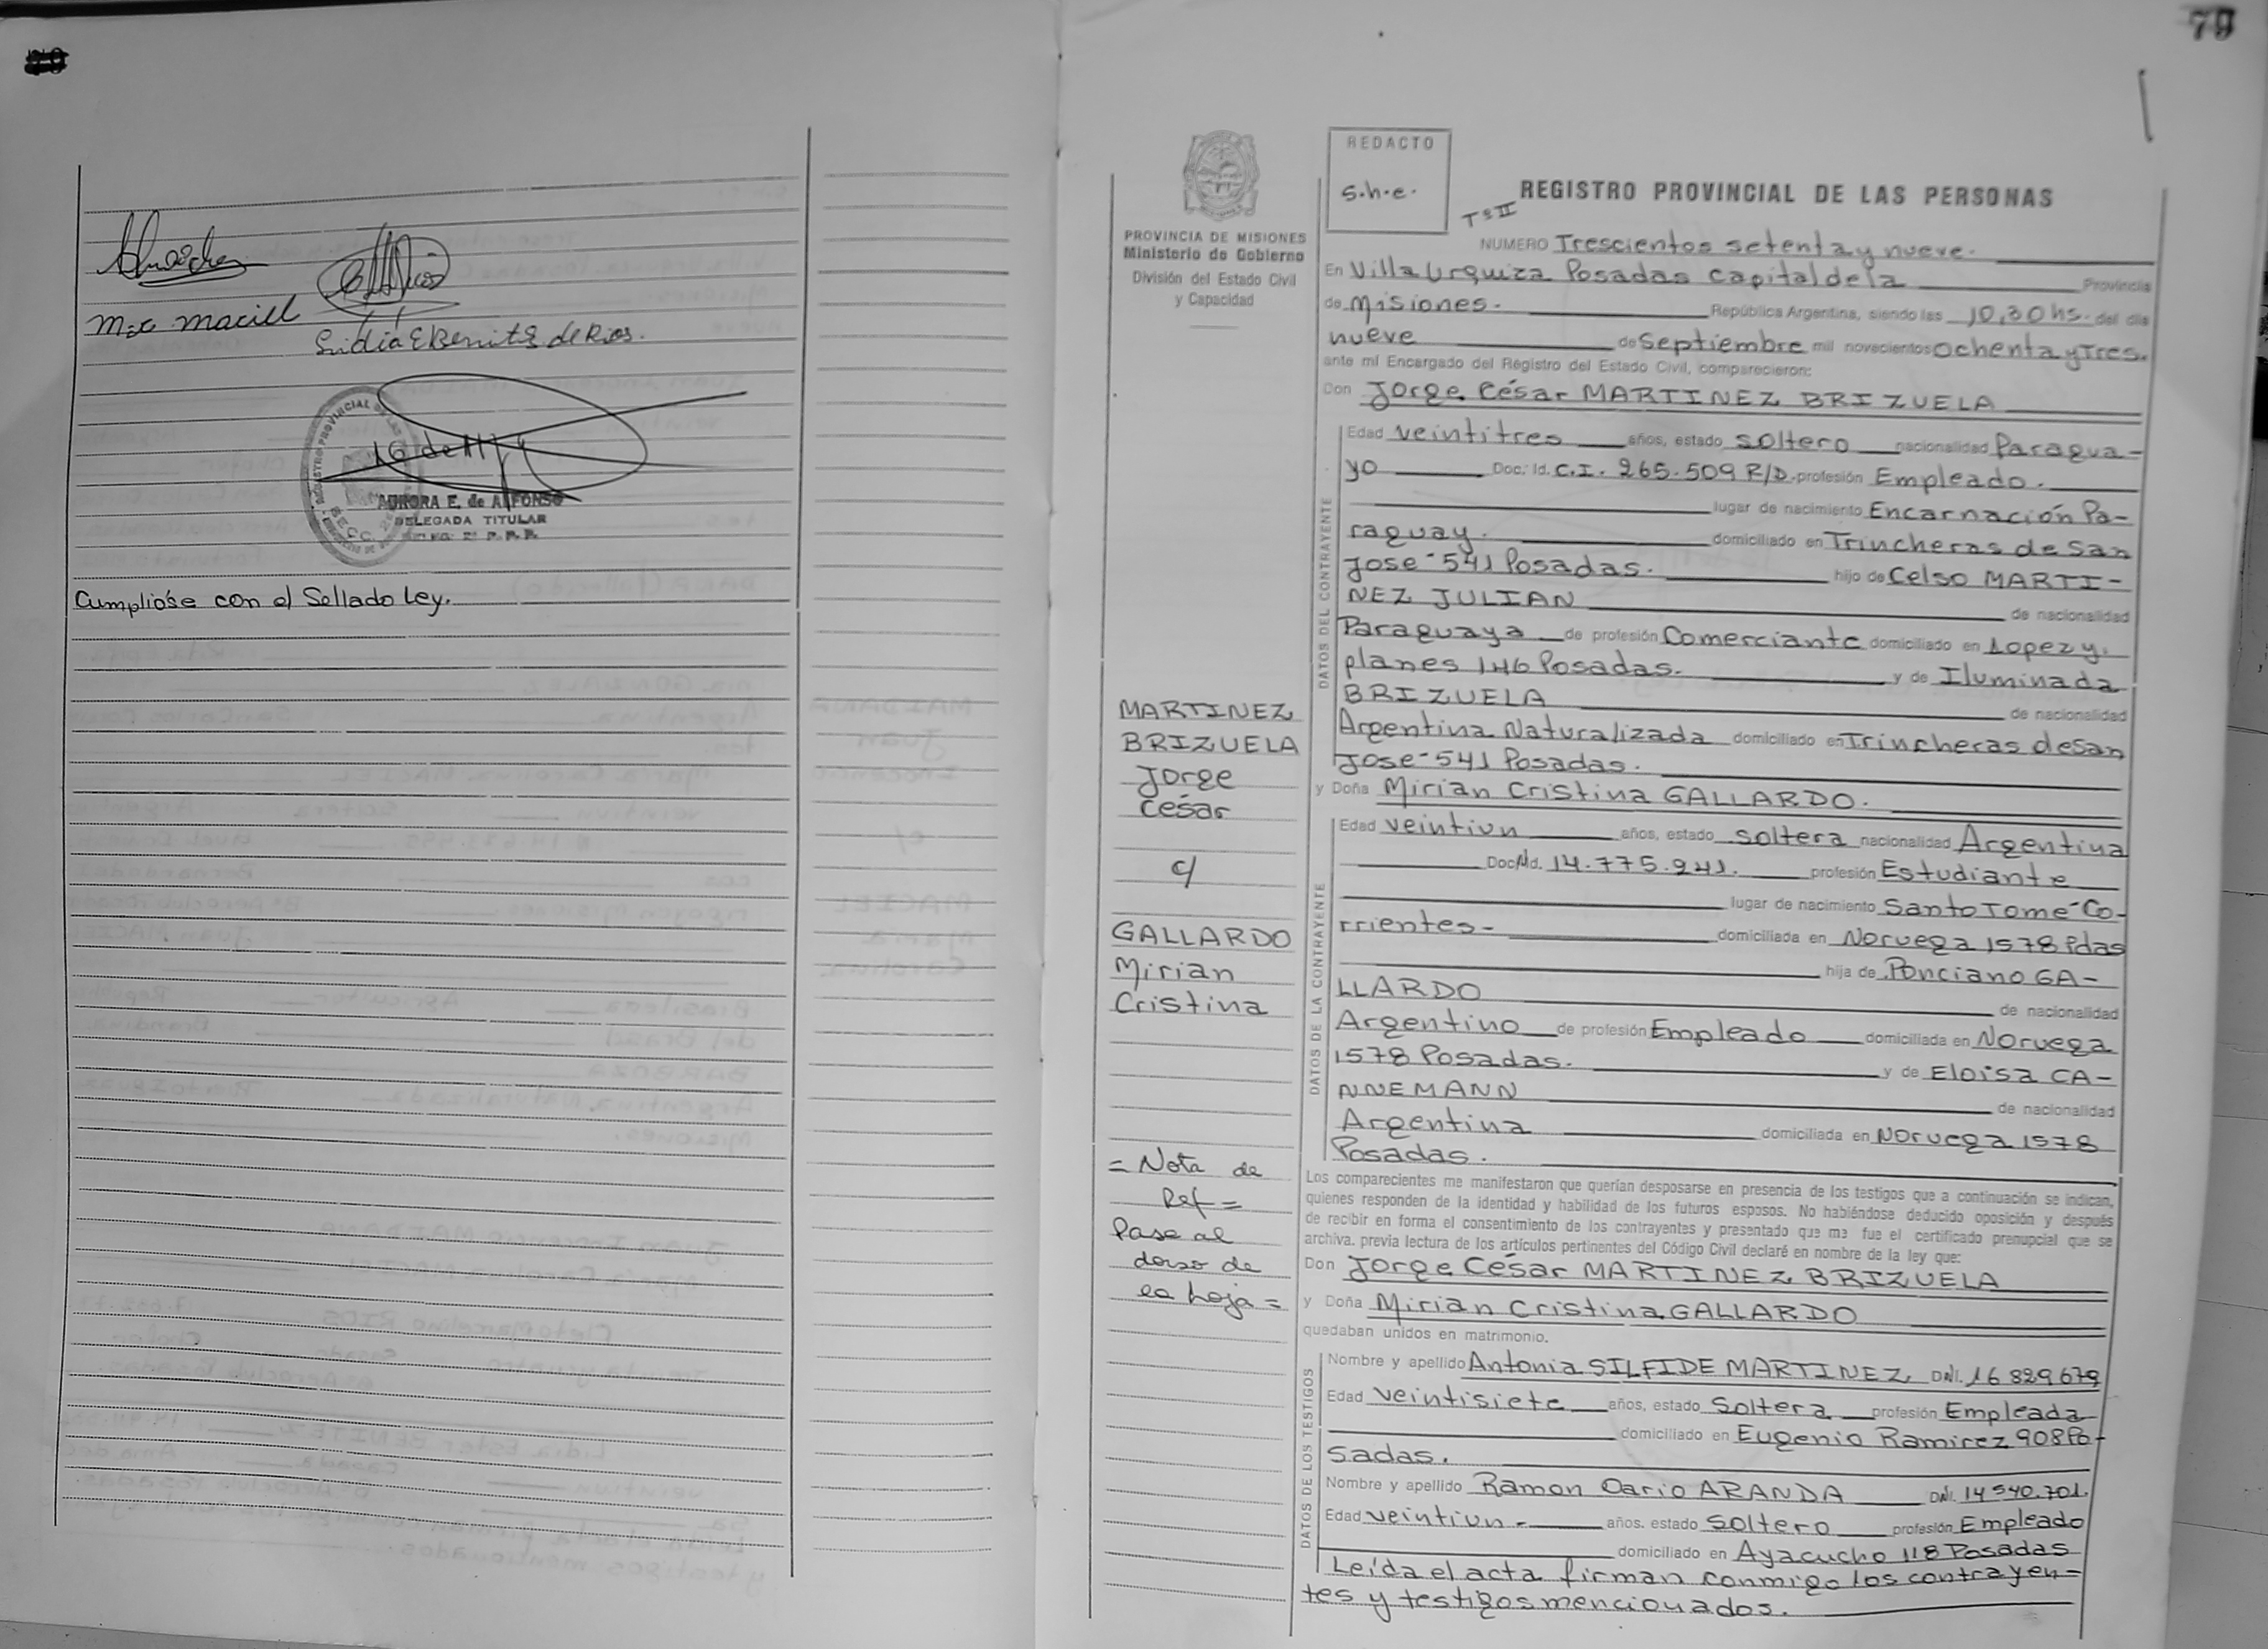 M.C. Maciel
Lidia E Benitez de Rios.
REGISTRO PROVINCIAL
AURORA E. de ALFONSO
DELEGADA TITULAR
Cumplióse con el Sellado Ley.
79
REDACTO
s.h.e.
Tº II
REGISTRO PROVINCIAL DE LAS PERSONAS
PROVINCIA DE MISIONES
Ministerio de Gobierno
División del Estado Civil
y Capacidad
NUMERO Trescientos setenta y nueve.
En Villa Urquiza Posadas Capital de la Provincia
de Misiones. República Argentina, siendo las 10,30 hs. del día
nueve de Septiembre mil novecientos Ochenta y Tres.
ante mí Encargado del Registro del Estado Civil, comparecieron:
Con Jorge César MARTINEZ BRIZUELA
DATOS DEL CONTRAYENTE
Edad veintitres años, estado soltero nacionalidad Paragua-
yo Doc. Id. C.I. 265.509 R/D. profesión Empleado.
lugar de nacimiento Encarnación Pa-
raguay. domiciliado en Trincheras de San
José 541 Posadas. hijo de Celso MARTI-
NEZ JULIAN de nacionalidad
Paraguaya de profesión Comerciante domiciliado en Lopez y
planes 146 Posadas. y de Iluminada
BRIZUELA de nacionalidad
Argentina Naturalizada domiciliado en Trincheras de San
José 541 Posadas.
y Doña Mirian Cristina GALLARDO.
DATOS DE LA CONTRAYENTE
Edad veintiun años, estado soltera nacionalidad Argentina
Doc. Id. 14.775.941. profesión Estudiante
lugar de nacimiento Santo Tomé Co-
rrientes- domiciliada en Noruega 1578 Pdas
hija de Ponciano GA-
LLARDO de nacionalidad
Argentino de profesión Empleado domiciliada en Noruega
1578 Posadas. y de Eloisa CA-
NNEMANN de nacionalidad
Argentina domiciliada en Noruega 1578
Posadas.
MARTINEZ
BRIZUELA
Jorge
César
c/
GALLARDO
Mirian
Cristina
= Nota de
Ref =
Pase al
dorso de
la hoja =
Los comparecientes me manifestaron que querían desposarse en presencia de los testigos que a continuación se indican,
quienes responden de la identidad y habilidad de los futuros esposos. No habiéndose deducido oposición y después
de recibir en forma el consentimiento de los contrayentes y presentado que me fue el certificado prenupcial que se
archiva. previa lectura de los artículos pertinentes del Código Civil declaré en nombre de la ley que:
Don Jorge César MARTINEZ BRIZUELA
y Doña Mirian Cristina GALLARDO
quedaban unidos en matrimonio.
DATOS DE LOS TESTIGOS
Nombre y apellido Antonia SILFIDE MARTINEZ DNI. 16 829.679
Edad veintisiete años, estado Soltera profesión Empleada
domiciliado en Eugenio Ramirez 908 Po-
sadas.
Nombre y apellido Ramon Dario ARANDA DNI. 14 540.701.
Edad veintiun- años. estado soltero profesión Empleado
domiciliado en Ayacucho 118 Posadas
Leída el acta firman conmigo los contrayen-
tes y testigos mencionados.